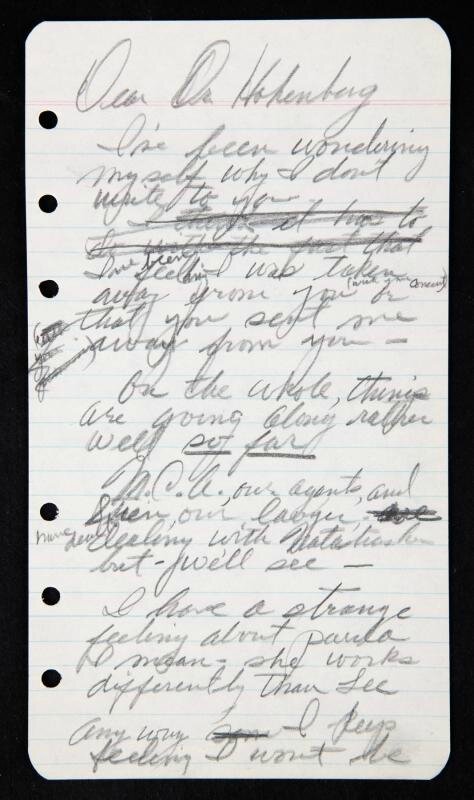 Dear Dr Hohenberg
I've been wondering
myself why I don't
write to you
I think it has to
do with the fact that
I've been feeling I was taken
away from you (with your consent) or
that you sent me
away from you —
On the whole, things
are going along rather
well so far
M.C.A., our agents, and
Stein, our lawyer,
have been dealing with Natasha
but - we'll see —
I have a strange
feeling about paula
I mean - she works
differently than Lee
any way I keep
feeling I won't be